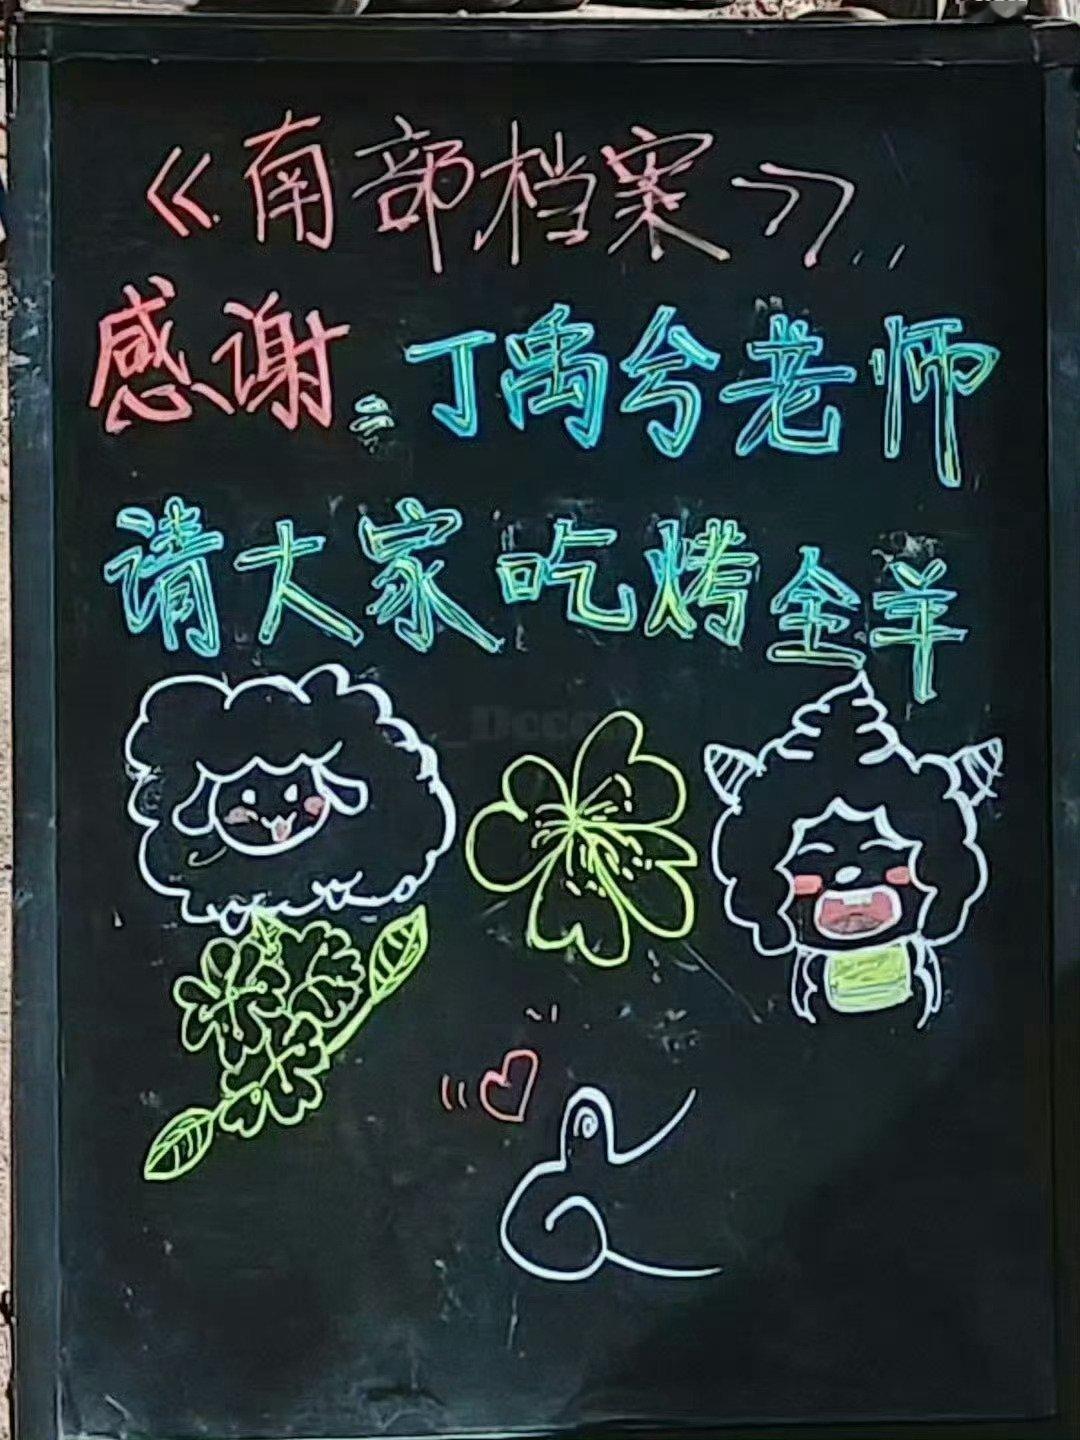 《南部档案》...
感谢:丁禹兮老师
请大家吃烤全羊